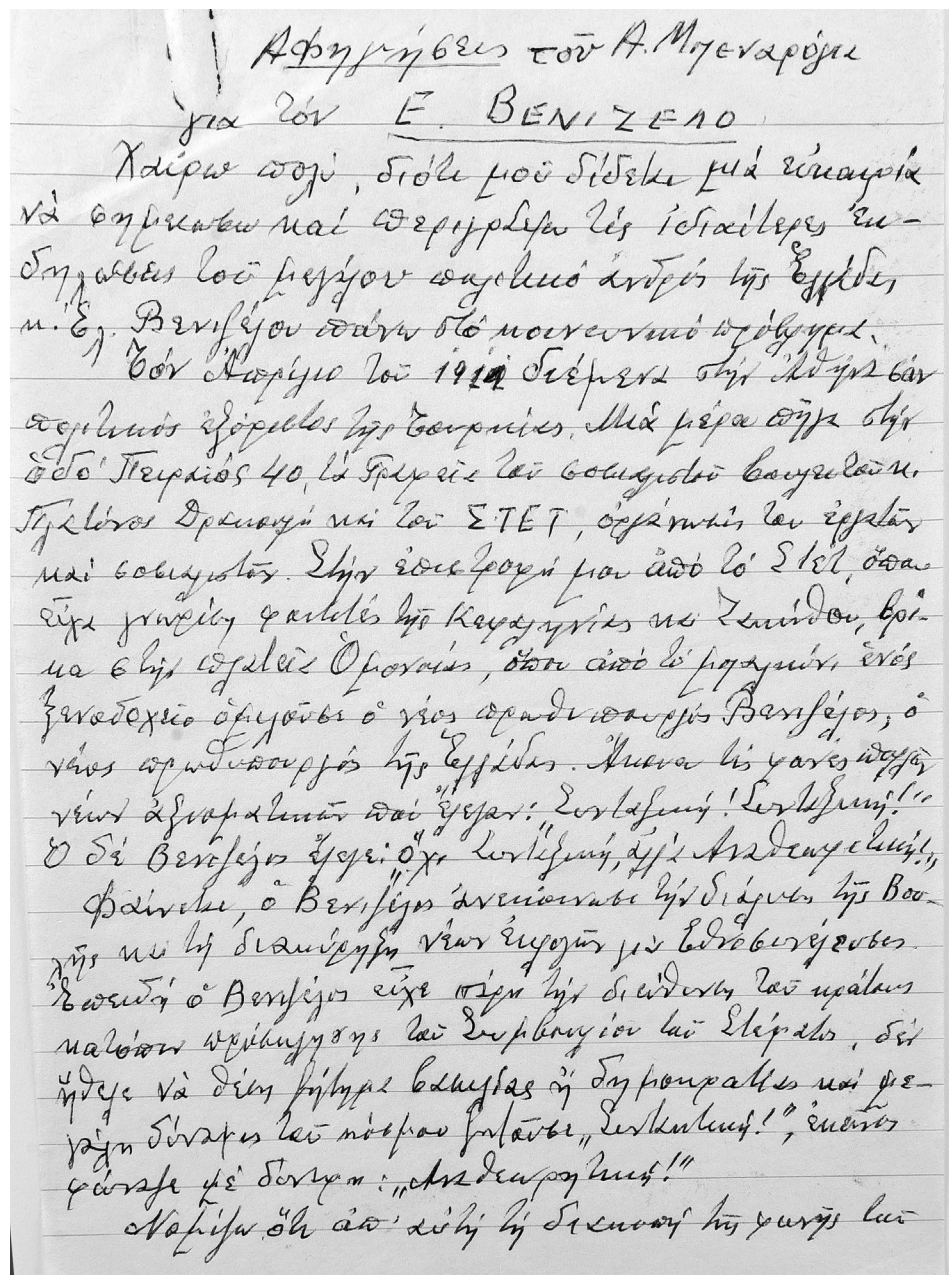 Αφηγήσεις τοῦ Α. Μπεναρόγια
για τόν Ε. ΒΕΝΙΖΕΛΟ
Χαίρω πολύ, διότι μοῦ δίδεται μιά εὐκαιρία
νά σημειωσω καί περιγράψω τές ἰδιαίτερες ἐκ-
δηλώσεις τοῦ μεγάλου πολιτικό ἀνδρός τῆς Ἑλλάδας
κ. Ἐλ. Βενιζέλου πάνω στό κοινωνικό πρόβλημα.
Τόν Ἀπρίλιο τοῦ διέμενα στήν Ἀθήνα σαν
πολιτικός ἐξόριστος τῆς Τουρκίας. Μιά μέρα πῆγα στήν
ὁδό Πειραιῶς 40, τά Γραφεῖα τοῦ σοσιαλιστοῦ βουλευτοῦ κ.
Πλατόνος Δρακούλη καί τοῦ ΣΤΕΤ, ὀργάνωσις των ἐργατῶν
καί σοσιαλιστῶν. Στήν ἐπιστροφή μου ἀπό τό Στέτ, ὅπου
εἶχα γνωρίση φοιτητές τῆς Κεφαλληνίας και Ζακύνθου, βρῖ-
κα στήν πλατεῖα Ὁμονοίας, ὅπου ἀπό τό μπαλκόνι ἑνός
ξενοδοχείο ὁμιλοῦσε ὁ νέος πρωθυπουργός Βενιζέλος, ὁ
νέος πρωθυπουργός τῆς Ἑλλάδας. Ἄκουα τίς φωνές πολλῶν
νέων ἀξιοματικῶν πού ἔλεγαν: Συνταξική! Συνταξική!"
Ὁ δέ Βενιζέλος ἔλεγε: „ὄχι Συνταξική, ἀλλά Αναθεωρητική!"
Φαίνεται, ὁ Βενιζέλος ἀνεκοίνωσε τήν διάλυση τῆς Βου-
λῆς και τή διακύρηξη νέων ἐκλογῶν για Ἐθνοσυνέλευσις.
Ἐπειδή ὁ Βενιζέλος εἶχε πάρη τήν διεύθυνση τοῦ κράτους
κατόπιν πρόσκλησης τοῦ Συμβουλίου τοῦ Στέματος, δέν
ἤθελε νά θέση ζήτημα βασιλείας ἤ δημοκρατίας καί με-
γάλη δύναμις τοῦ κόσμου ζητοῦσε „Συντακτική!", ἐκεῖνος
φώναζε μέ δύναμη: „Αναθεωρητική!"
Νομίζω ὅτι ἀπ' αὐτή τή διακοπή τῆς φωνῆς τοῦ